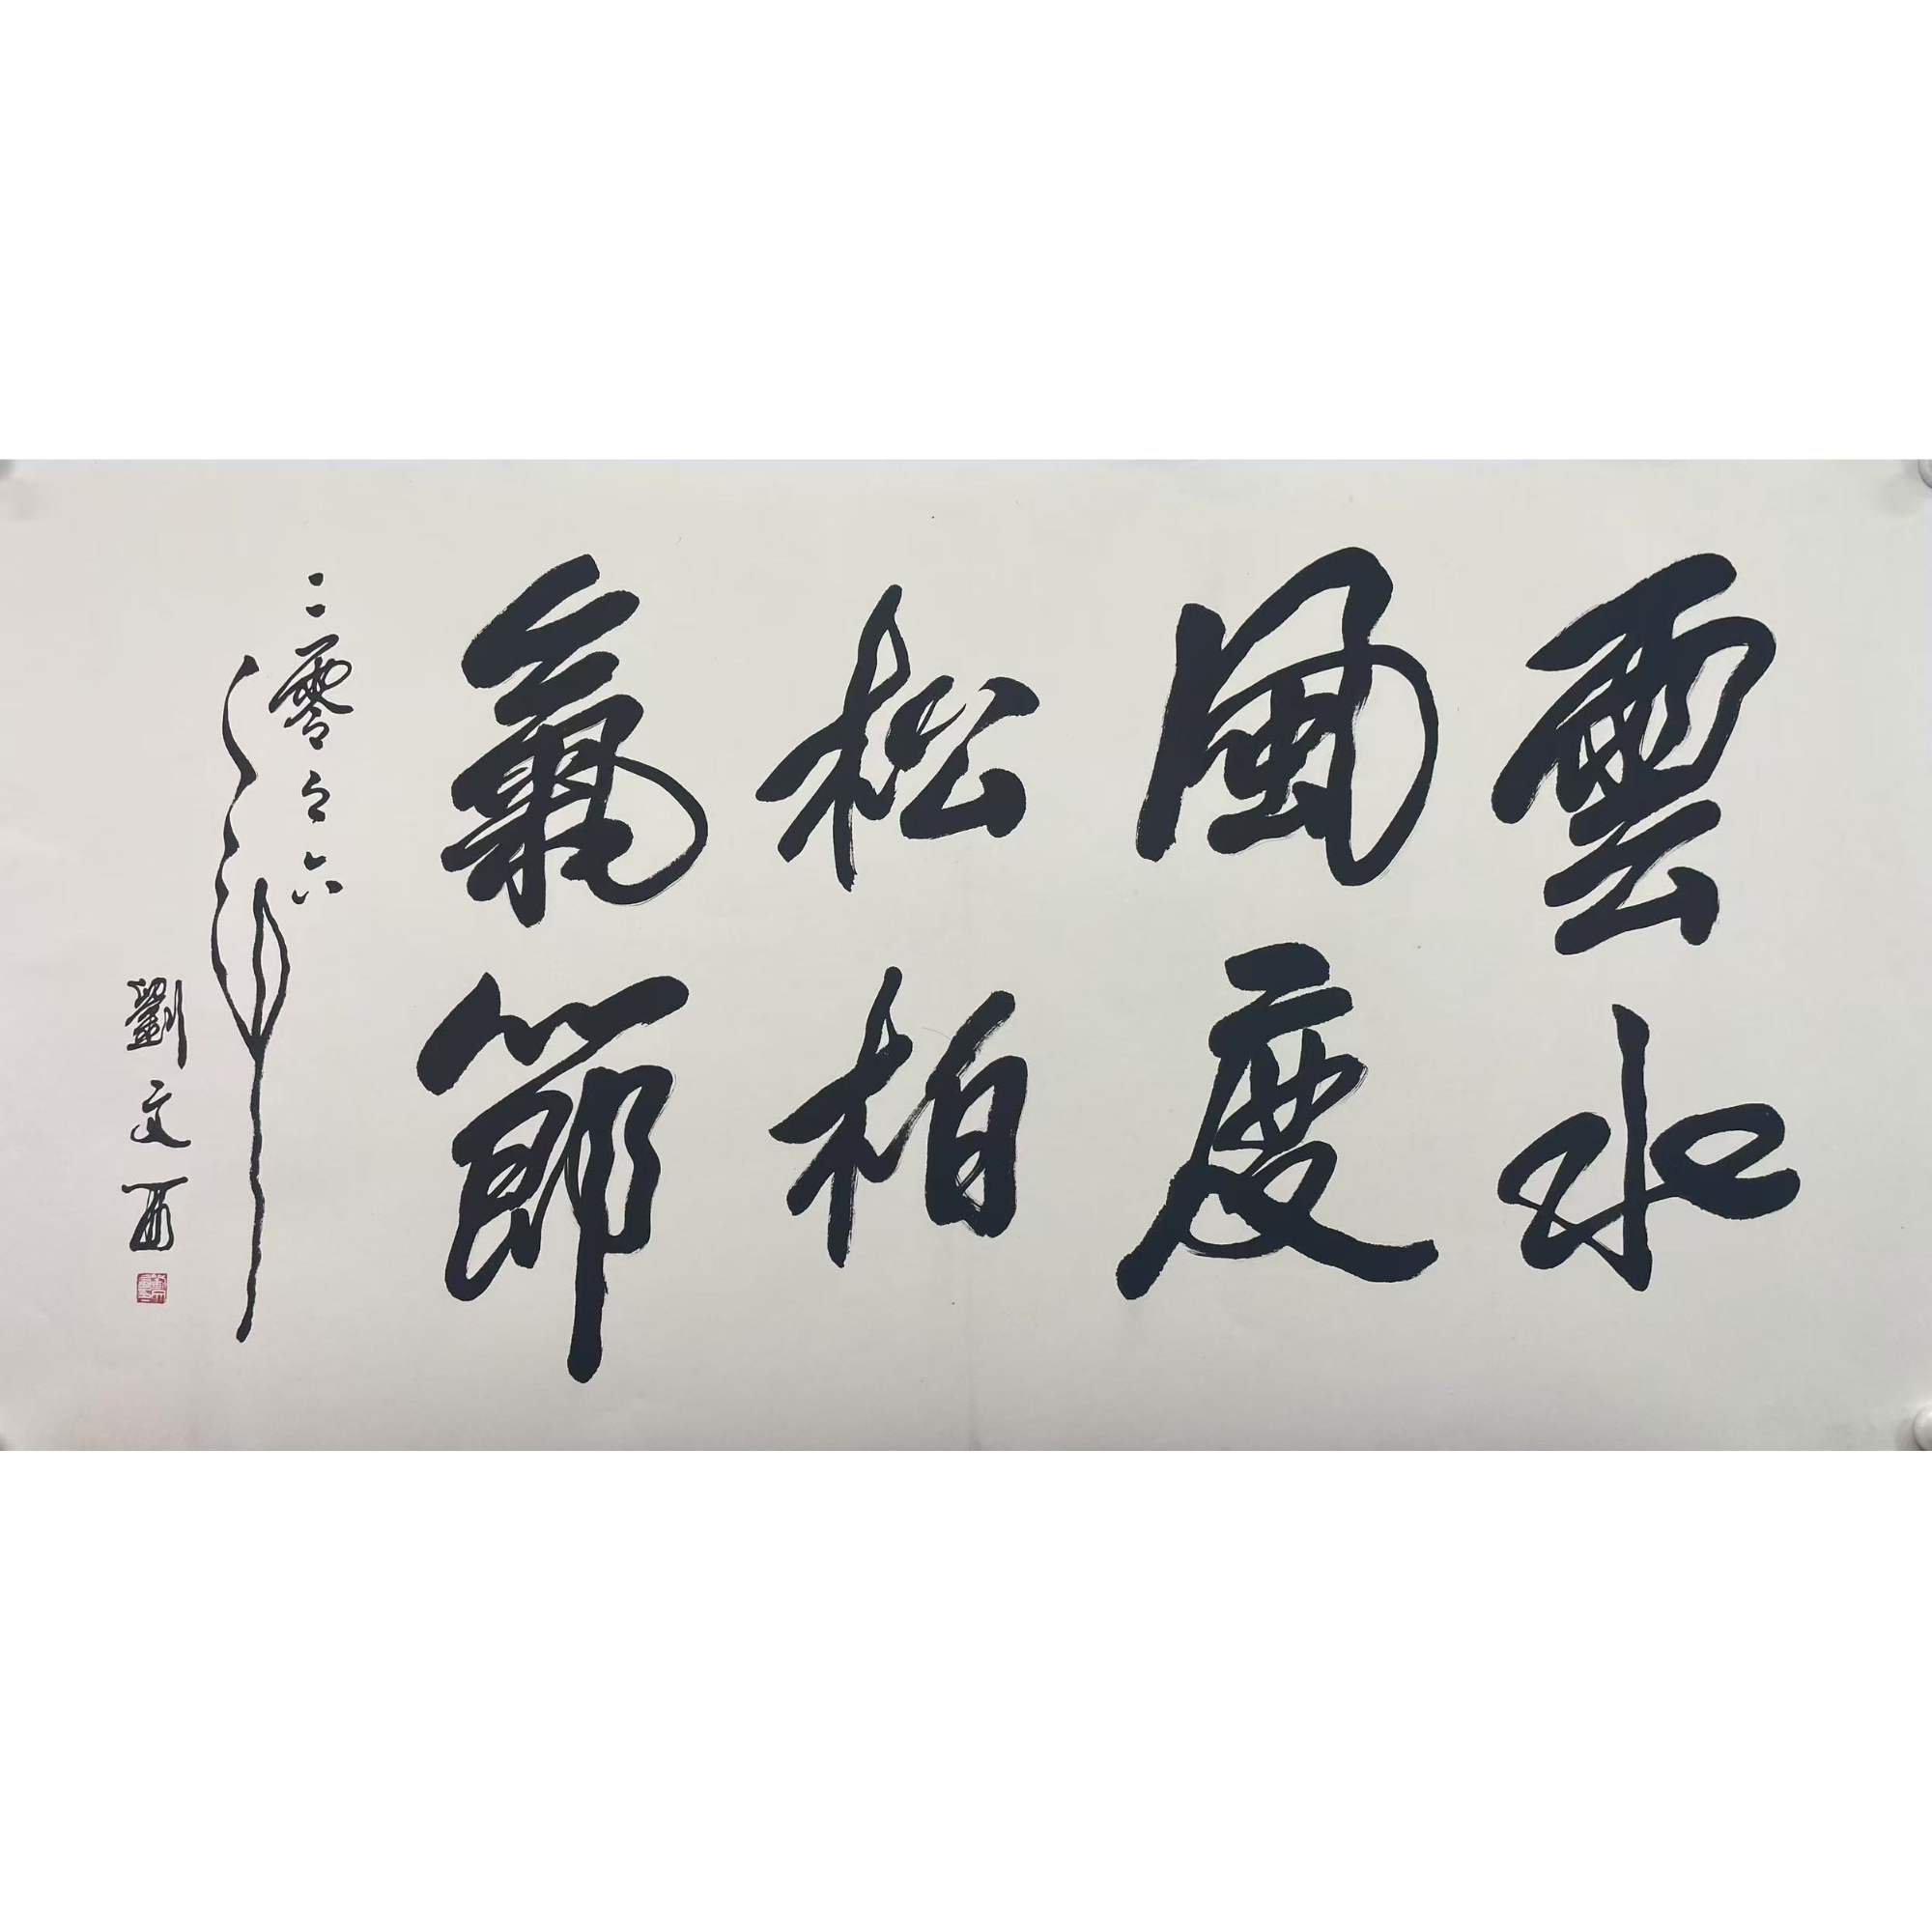 雲水
風度
松柏
氣節
二零零六
年
劉文西